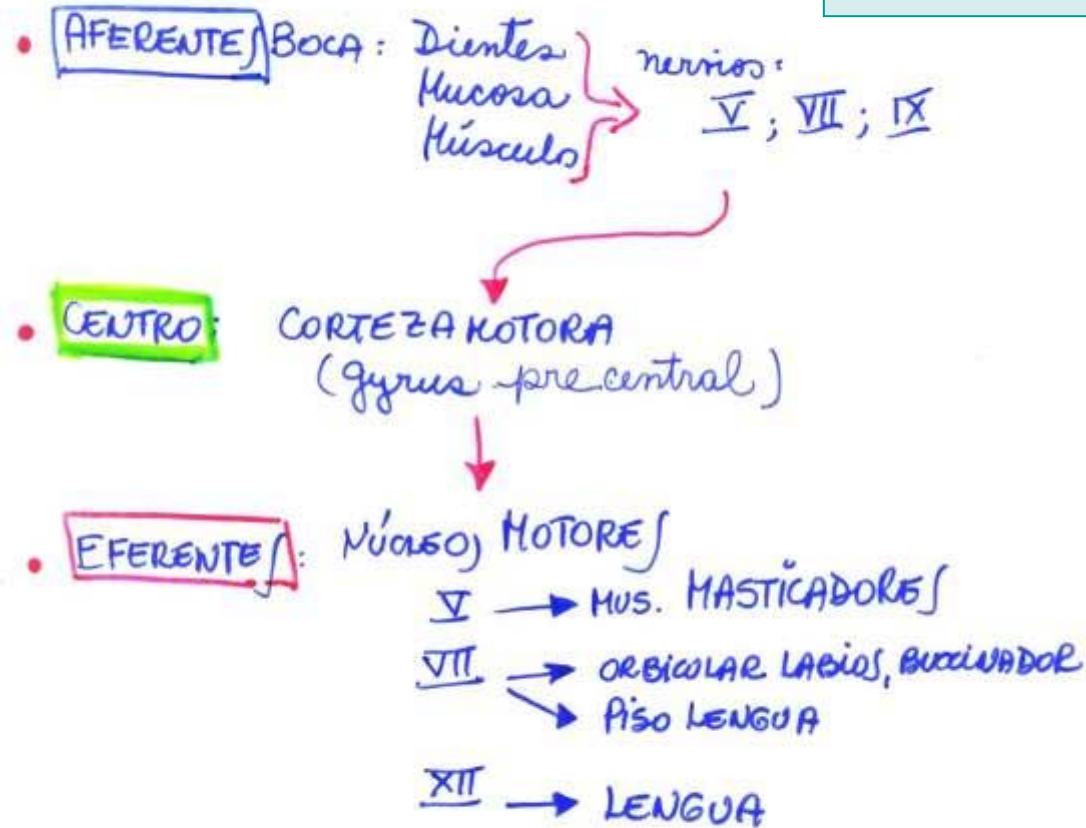 • AFERENTES BOCA: Dientes
Mucosa
Músculo
nervios:
V; VII; IX
• CENTRO: CORTEZA MOTORA
(gyrus precentral)
• EFERENTES: NÚCLEOS MOTORES
V → MUS. MASTICADORES
VII → ORBICULAR LABIOS, BUCCINADOR
→ PISO LENGUA
XII → LENGUA